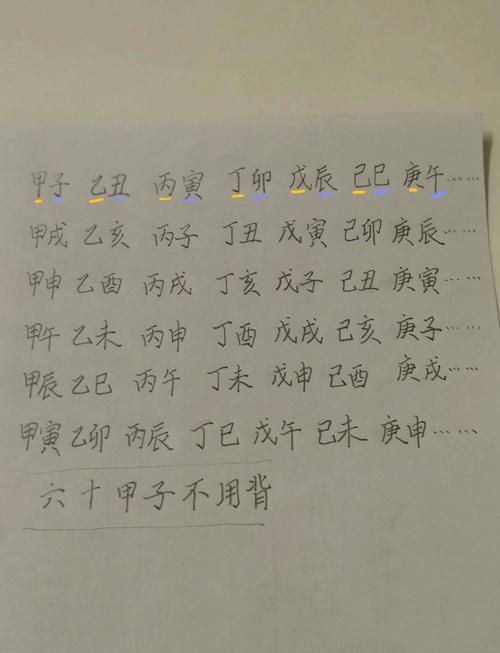 甲子 乙丑 丙寅 丁卯 戊辰 己巳 庚午……
甲戌 乙亥 丙子 丁丑 戊寅 己卯 庚辰……
甲申 乙酉 丙戌 丁亥 戊子 己丑 庚寅……
甲午 乙未 丙申 丁酉 戊戌 己亥 庚子……
甲辰 乙巳 丙午 丁未 戊申 己酉 庚戌……
甲寅 乙卯 丙辰 丁巳 戊午 己未 庚申……
六十甲子不用背